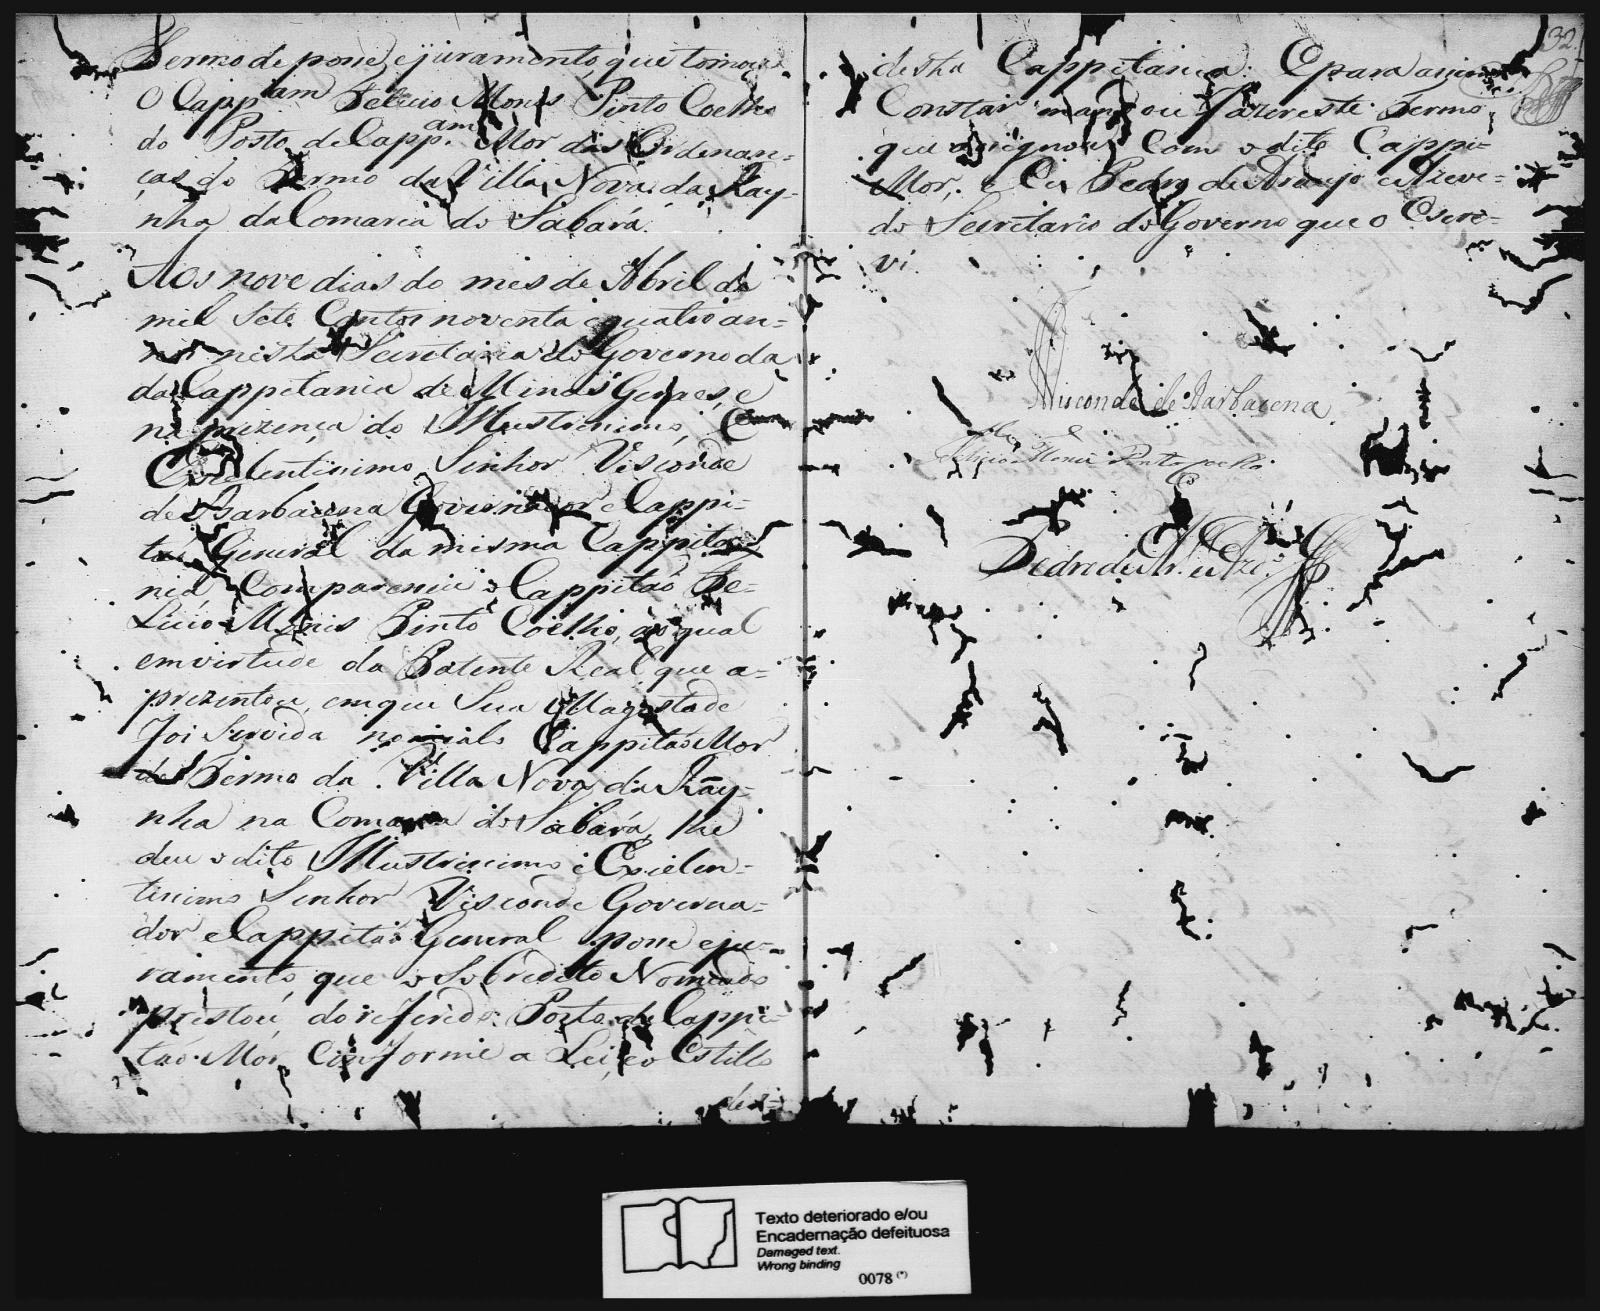 Termo de posse, e juramento, que tomou
O Capp.am Felicio Monis Pinto Coelho
do Posto de Capp.am Mor das Ordenan-
ças do Termo da Villa Nova da Ray-
nha da Comarca do Sabará.
Aos nove dias do mes de Abril de
mil Sete Centos noventa e quatro an-
nos nesta Secretaria do Governo da
da Cappitania de Minas Geraes, e
na prezença do Illustrissimo, e
Excelentissimo Senhor Visconde
de Barbacena Governador e Cappi-
tão General da mesma Cappita-
nia, Compareceu o Cappitão Fe-
Licio Monis Pinto Coelho, ao qual
em virtude da Patente Real, que a-
prezentou, em que Sua Magestade
foi Servida nomialo Cappitão Mor
do Termo da Villa Nova da Ray-
nha na Comarca do Sabará, lhe
deu o dito Illustrissimo e Excelen-
tissimo Senhor Visconde Governa-
dor e Cappitão General posse e ju-
ramento que o Sobredito Nomeado
prestou, do referido Posto de Cappi-
tão Mor, Conforme a Lei, e o Estillo
des-
32.
desta Cappitania. E para assim
Constar mandou fazer este Termo
que assignou Com o dito Cappi-
Mor; e Eu Pedro de Araujo e Azeve-
do Secretario do Governo que o Escre-
vi.
Visconde de Barbacena
Felicio Moniz Pinto Coelho
Pedro de Ar.º e Az.º
Texto deteriorado e/ou
Encadernação defeituosa
Damaged text.
Wrong binding
0078 (*)